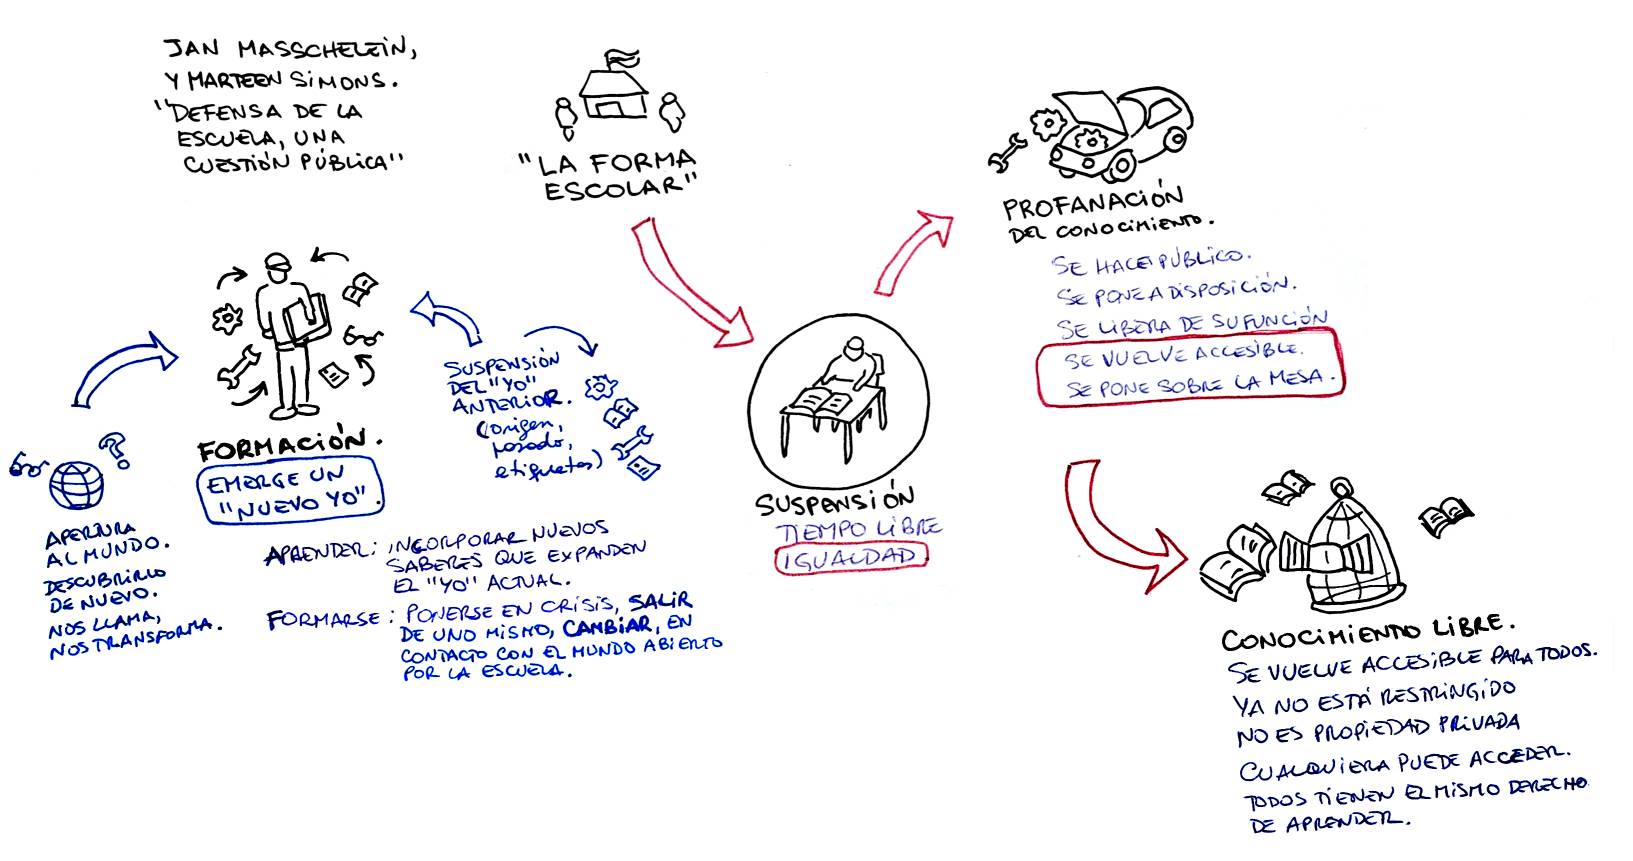 JAN MASSCHELEIN,
Y MARTEEN SIMONS.
"DEFENSA DE LA
ESCUELA, UNA
CUESTIÓN PÚBLICA"
"LA FORMA
ESCOLAR"
PROFANACIÓN
DEL CONOCIMIENTO.
SE HACE PÚBLICO.
SE PONE A DISPOSICIÓN.
SE LIBERA DE SU FUNCIÓN
SE VUELVE ACCESIBLE.
SE PONE SOBRE LA MESA.
SUSPENSIÓN
TIEMPO LIBRE
IGUALDAD
CONOCIMIENTO LIBRE.
SE VUELVE ACCESIBLE PARA TODOS.
YA NO ESTÁ RESTRINGIDO
NO ES PROPIEDAD PRIVADA
CUALQUIERA PUEDE ACCEDER.
TODOS TIENEN EL MISMO DERECHO
DE APRENDER.
FORMACIÓN.
EMERGE UN
"NUEVO YO".
SUSPENSIÓN
DEL "YO"
ANTERIOR.
(origen,
pasado,
etiquetas)
?
APERTURA
AL MUNDO.
DESCUBRIRLO
DE NUEVO.
NOS LLAMA,
NOS TRANSFORMA.
APRENDER: INCORPORAR NUEVOS
SABERES QUE EXPANDEN
EL "YO" ACTUAL.
FORMARSE: PONERSE EN CRISIS, SALIR
DE UNO MISMO, CAMBIAR, EN
CONTACTO CON EL MUNDO ABIERTO
POR LA ESCUELA.